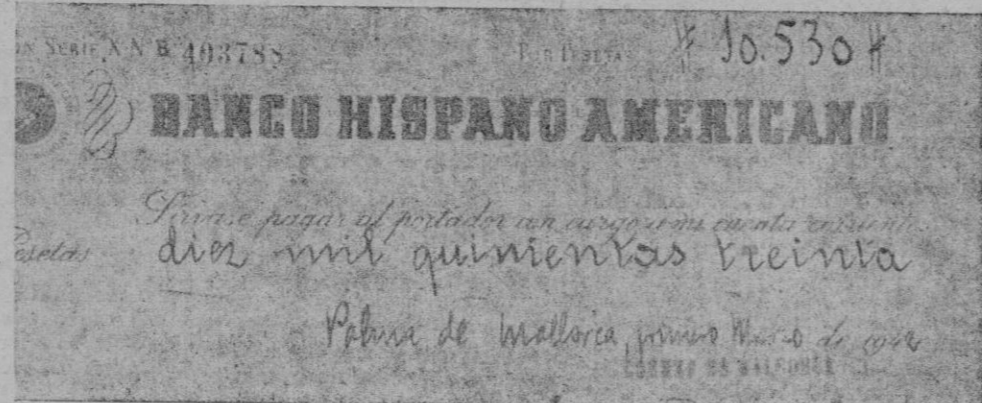 SERIE X N B 403788 POR PESETAS # 10.530 #
BANCO HISPANO AMERICANO
Sirvase pagar al portador con cargo a mi cuenta corriente
Pesetas diez mil quinientas treinta
Palma de Mallorca, primero Marzo de